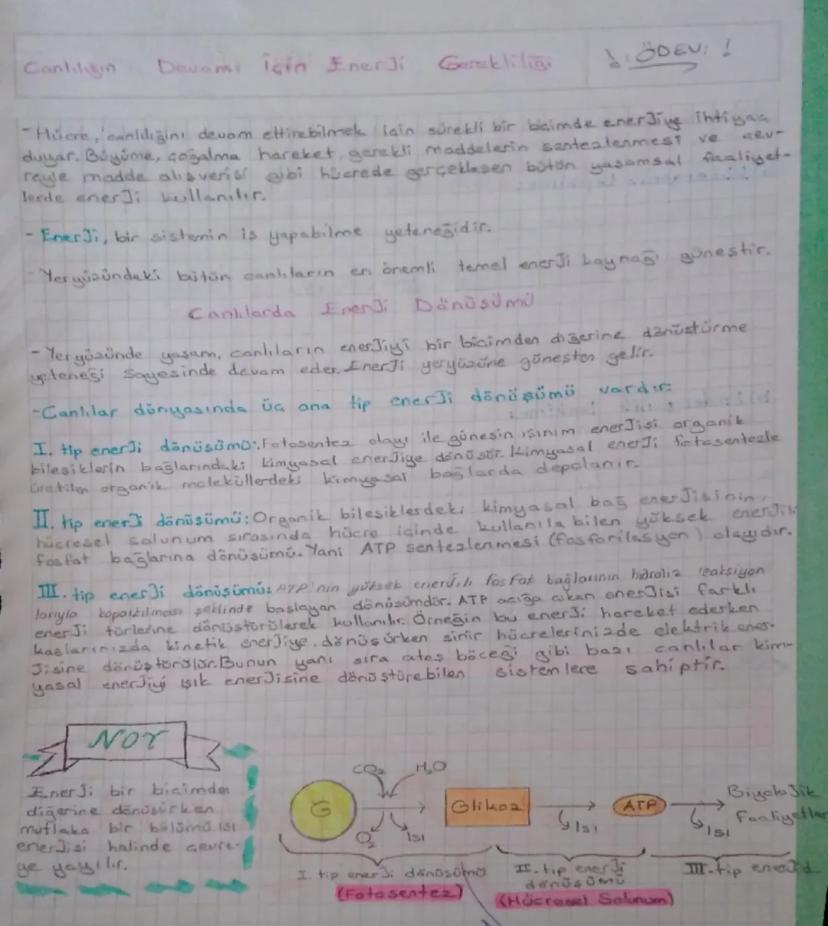 Canlılığın Devamı için Enerji Gerekliliği
! ÖDEV: !
- Hücre, canlılığını devam ettirebilmek için sürekli bir biçimde enerjiye ihtiyaç
duyar. Büyüme, çoğalma hareket, gerekli maddelerin sentezlenmesi ve çev-
reyle madde alışverişi gibi hücrede gerçekleşen bütün yaşamsal faaliyet-
lerde enerji kullanılır.
- Enerji, bir sistemin iş yapabilme yeteneğidir.
- Yeryüzündeki bütün canlıların en önemli temel enerji kaynağı güneştir.
Canlılarda Enerji Dönüşümü
- Yeryüzünde yaşam, canlıların enerjiyi bir biçimden diğerine dönüştürme
yeteneği sayesinde devam eder. Enerji yeryüzüne güneşten gelir.
- Canlılar dünyasında üç ana tip enerji dönüşümü vardır:
I. tip enerji dönüşümü: Fotosentez olayı ile güneşin ışınım enerjisi organik
bileşiklerin bağlarındaki kimyasal enerjiye dönüşür. Kimyasal enerji fotosentezle
üretilen organik moleküllerdeki kimyasal bağlarda depolanır.
II. tip enerji dönüşümü: Organik bileşiklerdeki kimyasal bağ enerjisinin,
hücresel solunum sırasında hücre içinde kullanıla bilen yüksek enerjili
fosfat bağlarına dönüşümü. Yani ATP sentezlenmesi (fosforilasyon) olayıdır.
III. tip enerji dönüşümü: ATP'nin yüksek enerjili fosfat bağlarının hidroliz reaksiyon
larıyla kopartılması şeklinde başlayan dönüşümdür. ATP açığa çıkan enerjisi farklı
enerji türlerine dönüştürülerek kullanılır. Örneğin bu enerji hareket ederken
kaslarınızda kinetik enerjiye, dönüşürken sinir hücrelerinizde elektrik ener-
jisine dönüştürülür. Bunun yanı sıra ateş böceği gibi bazı canlılar kim-
yasal enerjiyi ışık enerjisine dönüştürebilen sistemlere sahiptir.
NOT
Enerji bir biçimden
diğerine dönüşürken
mutlaka bir bölümü ısı
enerjisi halinde çevre-
ye yayılır.
CO₂ H₂O
G Glikoz ATP Biyolojik
Faaliyetler
O₂ Isı Isı Isı
I. tip enerji dönüşümü
(Fotosentez)
II. tip enerji
dönüşümü
(Hücresel Solunum)
III. tip enerji